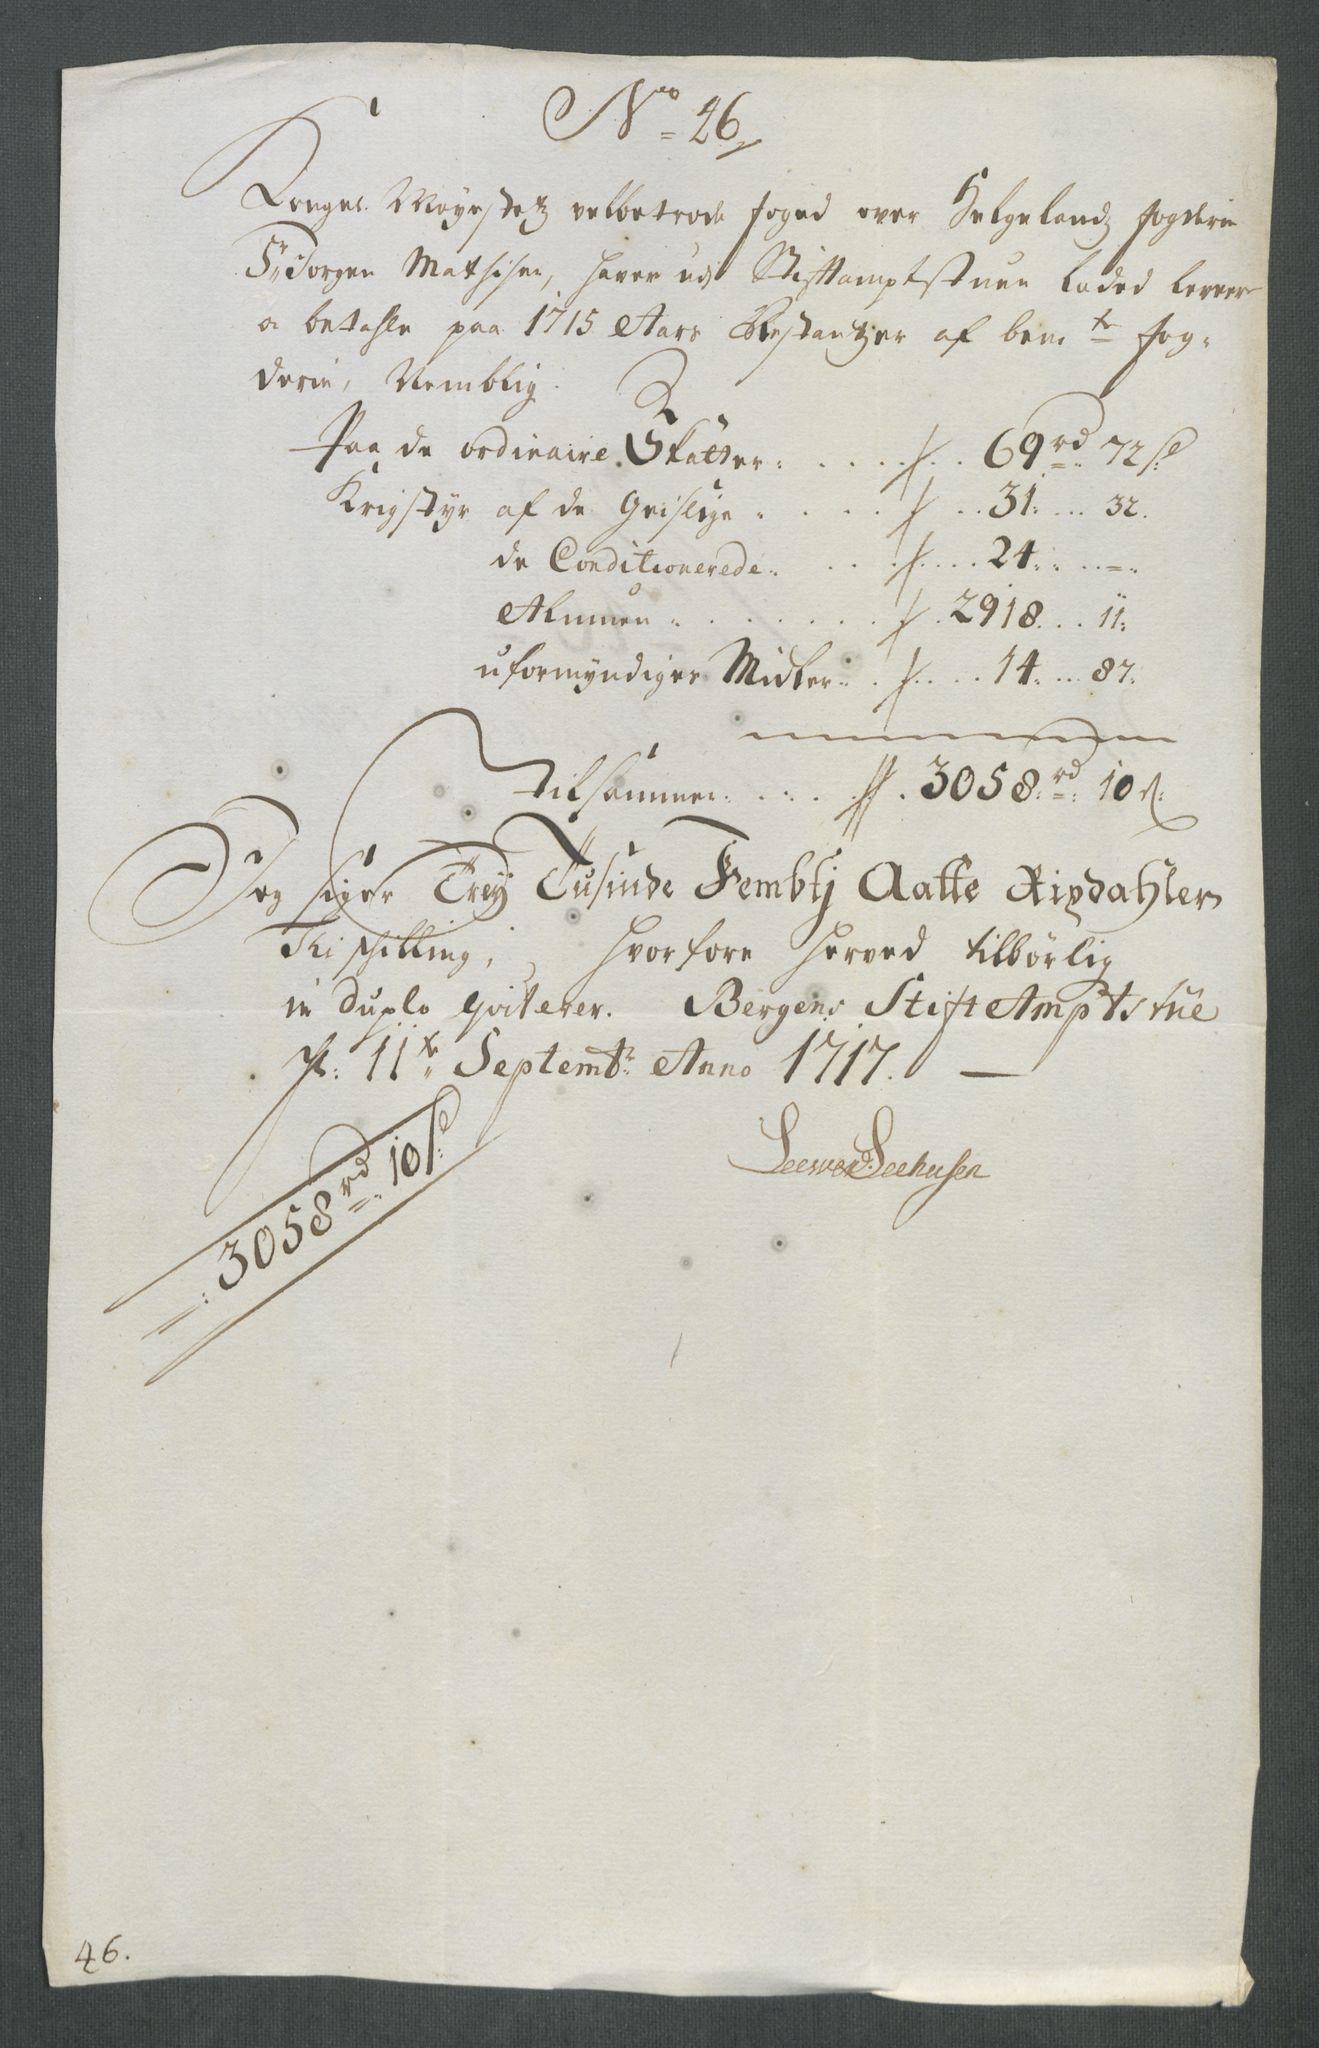 No 46
Kongel. Mayestetz velbetrode foged over Helgelandz fogderie
Sr Jorgen Mathisen, haver udj Stiftamptstuen laded levere
oc betahle paa 1715 Aars Restantzer af bemte fog-
derie, Nemblig:
Paa de ordinaire Skatter . . . . . 69 rd 72 s
Krigstyr af de Geistlige . . . . . 31 . . . 32.
de Conditionerede . . . . . 24 . . . =
Almuen . . . . . . . 2918 . . . 11:
uformyndiges Midler . . . . 14 . . . 87:
tilsammen . . . . . 3058 rd 10 s:
Jeg siger Trej Tusinde Fembtj Aatte Rixdahler
Ti skilling, hvorfore herved tilbørlig
in duplo qviterer. Bergens StiftAmptstue
d: 11te Septembr Anno 1717.
Seewerd: Seehusen
3058 rd 10 s
46.